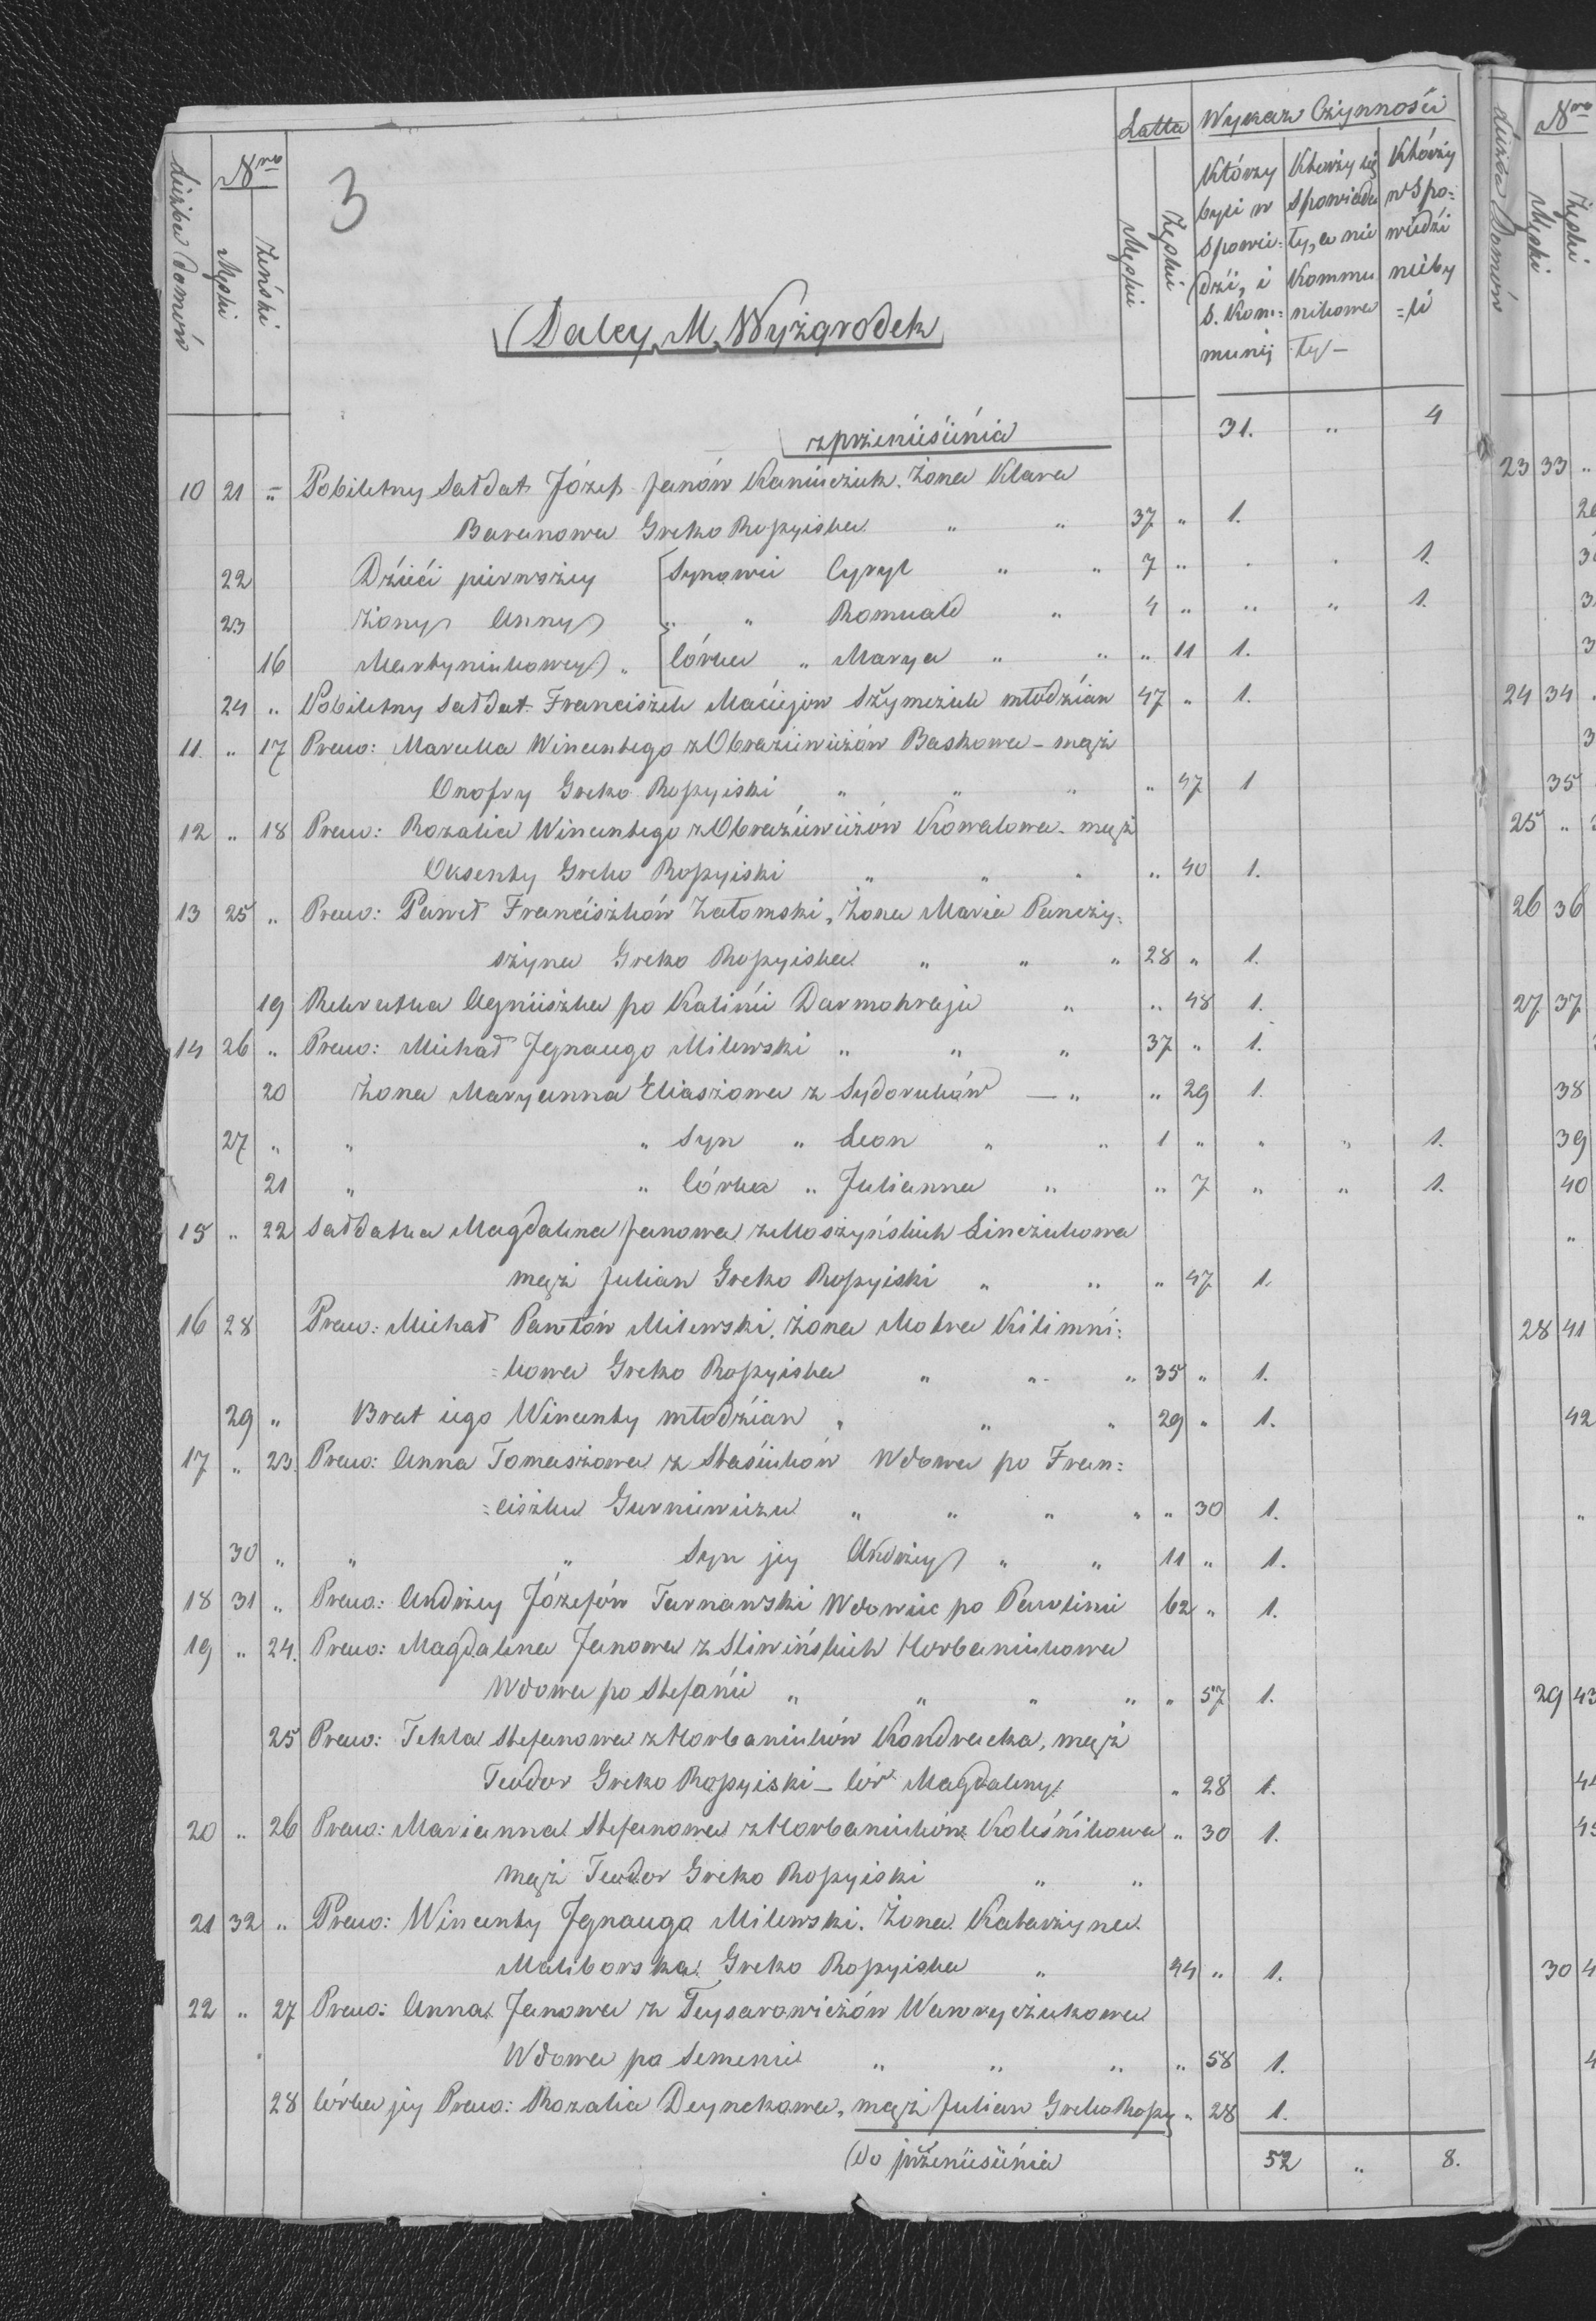 Latta Wykaz Czynności
Liczba Domów Nro Męski Żeński Męski Żeński Którzy byli w Spowie: dzi, i S. Kom: munij Którzy się Spowiada ły, a nie Kommu nikowa ły Którzy w Spo: wiedzi nieby =li
3
Daley M. Wyżgrodek
z przeniesienia 31. " 4
10 21 " Pobiletny Sałdat Józef Janów Kamińczuk. Żona Klara
Baranowa Greko Rossyiska " " 37 " 1.
22 Dzieci pierwszey Synowie Cyryl " " 7 " " " 1.
23 Żony Anny " " Romuald " 4 " " " 1.
16 Martyniukowey " Córka " Marya " " " 11 1.
24 " Pobiletny Sałdat Franciszek Maciejow Szymczuk młodzian 47 " 1.
11. " 17 Praco: Marcella Wincentego z Obraziewiczów Baskowa - mąż
Onofry Greko Rossyiski " " " " 47 1
12 " 18 Praco: Rozalia Wincentego z Obraziewiczów Kowalowa - mąż
Oksenty Greko Rossyiski " " " " 40 1.
13 25 " Praco: Paweł Franciszków Załomski, Żona Maria Panczy:
szyna Greko Rossyiska " " " 28 " 1.
19 Rekrutka Agnieszka po Kalinie Darmohraju " " 48 1.
14 26 " Praco: Michał Jgnacego Milewski " " " 37 " 1.
20 Żona Maryanna Eliaszowa z Sydoruków — " " 29 1.
27 " " " Syn " Leon " " 1 " " " 1.
21 " " Córka " Julianna " " 7 " " 1.
15 " 22 Sałdatka Magdalena Janowa z Moszyńskich Linczukowa
mąż Julian Greko Rossyiski " " " 47 1.
16 28 Praco: Michał Pawłów Milewski, Żona Motra Kilimni:
=kowa Greko Rossyiska " " " 35 " 1.
29 " Brat iego Wincenty młodzian " " " 29 " 1.
17 " 23. Praco: Anna Tomaszowa z Stasiuków Wdowa po Fran:
=ciszku Gurniewiczu " " " " " 30 1.
30 " " " Syn jey Andrzey " " 11 " 1.
18 31 " Praco: Andrzey Józefów Tarnawski Wdowiec po Pawlinie 62 " 1.
19 " 24. Praco: Magdalena Janowa z Sliwińskich Horbaniukowa
Wdowa po Stefanie " " " " " 57 1.
25 Praco: Tekla Stefanowa z Horbaniuków Kondracka, mąż
Teodor Greko Rossyiski - Cór: Magdaleny " 28 1.
20 " 26 Praco: Marianna Stefanowa z Horbaniuków Koleśnikowa " 30 1.
mąż Teodor Greko Rossyiski " "
21 32 " Praco: Wincenty Jgnacego Milewski. Żona Katarzyna
Maliborska Greko Rossyiska " 44 " 1.
22 " 27 Praco: Anna Janowa z Teysarowiczów Wawryczukowa
Wdowa po Semenie " " " " 58 1.
28 Córka jey Praco: Rozalia Deynekowa, mąż Julian Greko Rossy " 28 1.
Do przeniesienia 52 " 8.
Liczba Domów Nro Męski Żeński
23 33 "
24 34
35
25 "
26 36
27 37
38
39
40
"
28 41
42
"
29 43
30